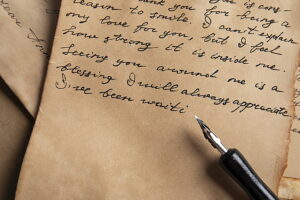 reason to smile. For being a
my love for you, but I can't explain
how strong it is inside me.
Seeing you around me is a
blessing I will always appreciate
I've been waiti